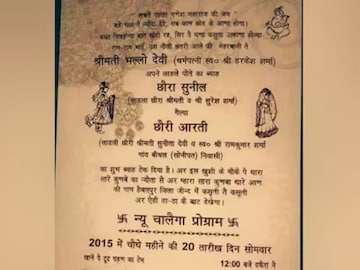 सबतै पहल्यां गणेश महाराज की जय
श्रीमती भल्लो देवी (धर्मपत्नी स्व० श्री हरकेश शर्मा)
अपने लाडले पोते का ब्याह
छौरा सुनील
(लाडला छौरा श्रीमती व श्री सुरेश शर्मा)
गैल्या
छौरी आरती
(लाडली छौरी श्रीमती सुनीता देवी व स्व० श्री रामकुमार शर्मा
गांव बीधल (सोनीपत) निवासी)
का शुभ ब्याह टेक दिया है। अर इस खुशी के मौके पे थारा
सारे कुणबे का न्यौता सै अर म्हारा सारा कुणबा थारे आण
की गाम हैबतपुर जिला जीन्द में कसुत्ती
अर ऐंडी ठा-ठा के बाट देखेगा।
卐 न्यू चालैगा प्रोग्राम 卐
2015 में चौथे महीने की 20 तारीख दिन सोमवार
खाने पै टूट पड़ण का टेम 12:00 बजे दफैरा नै